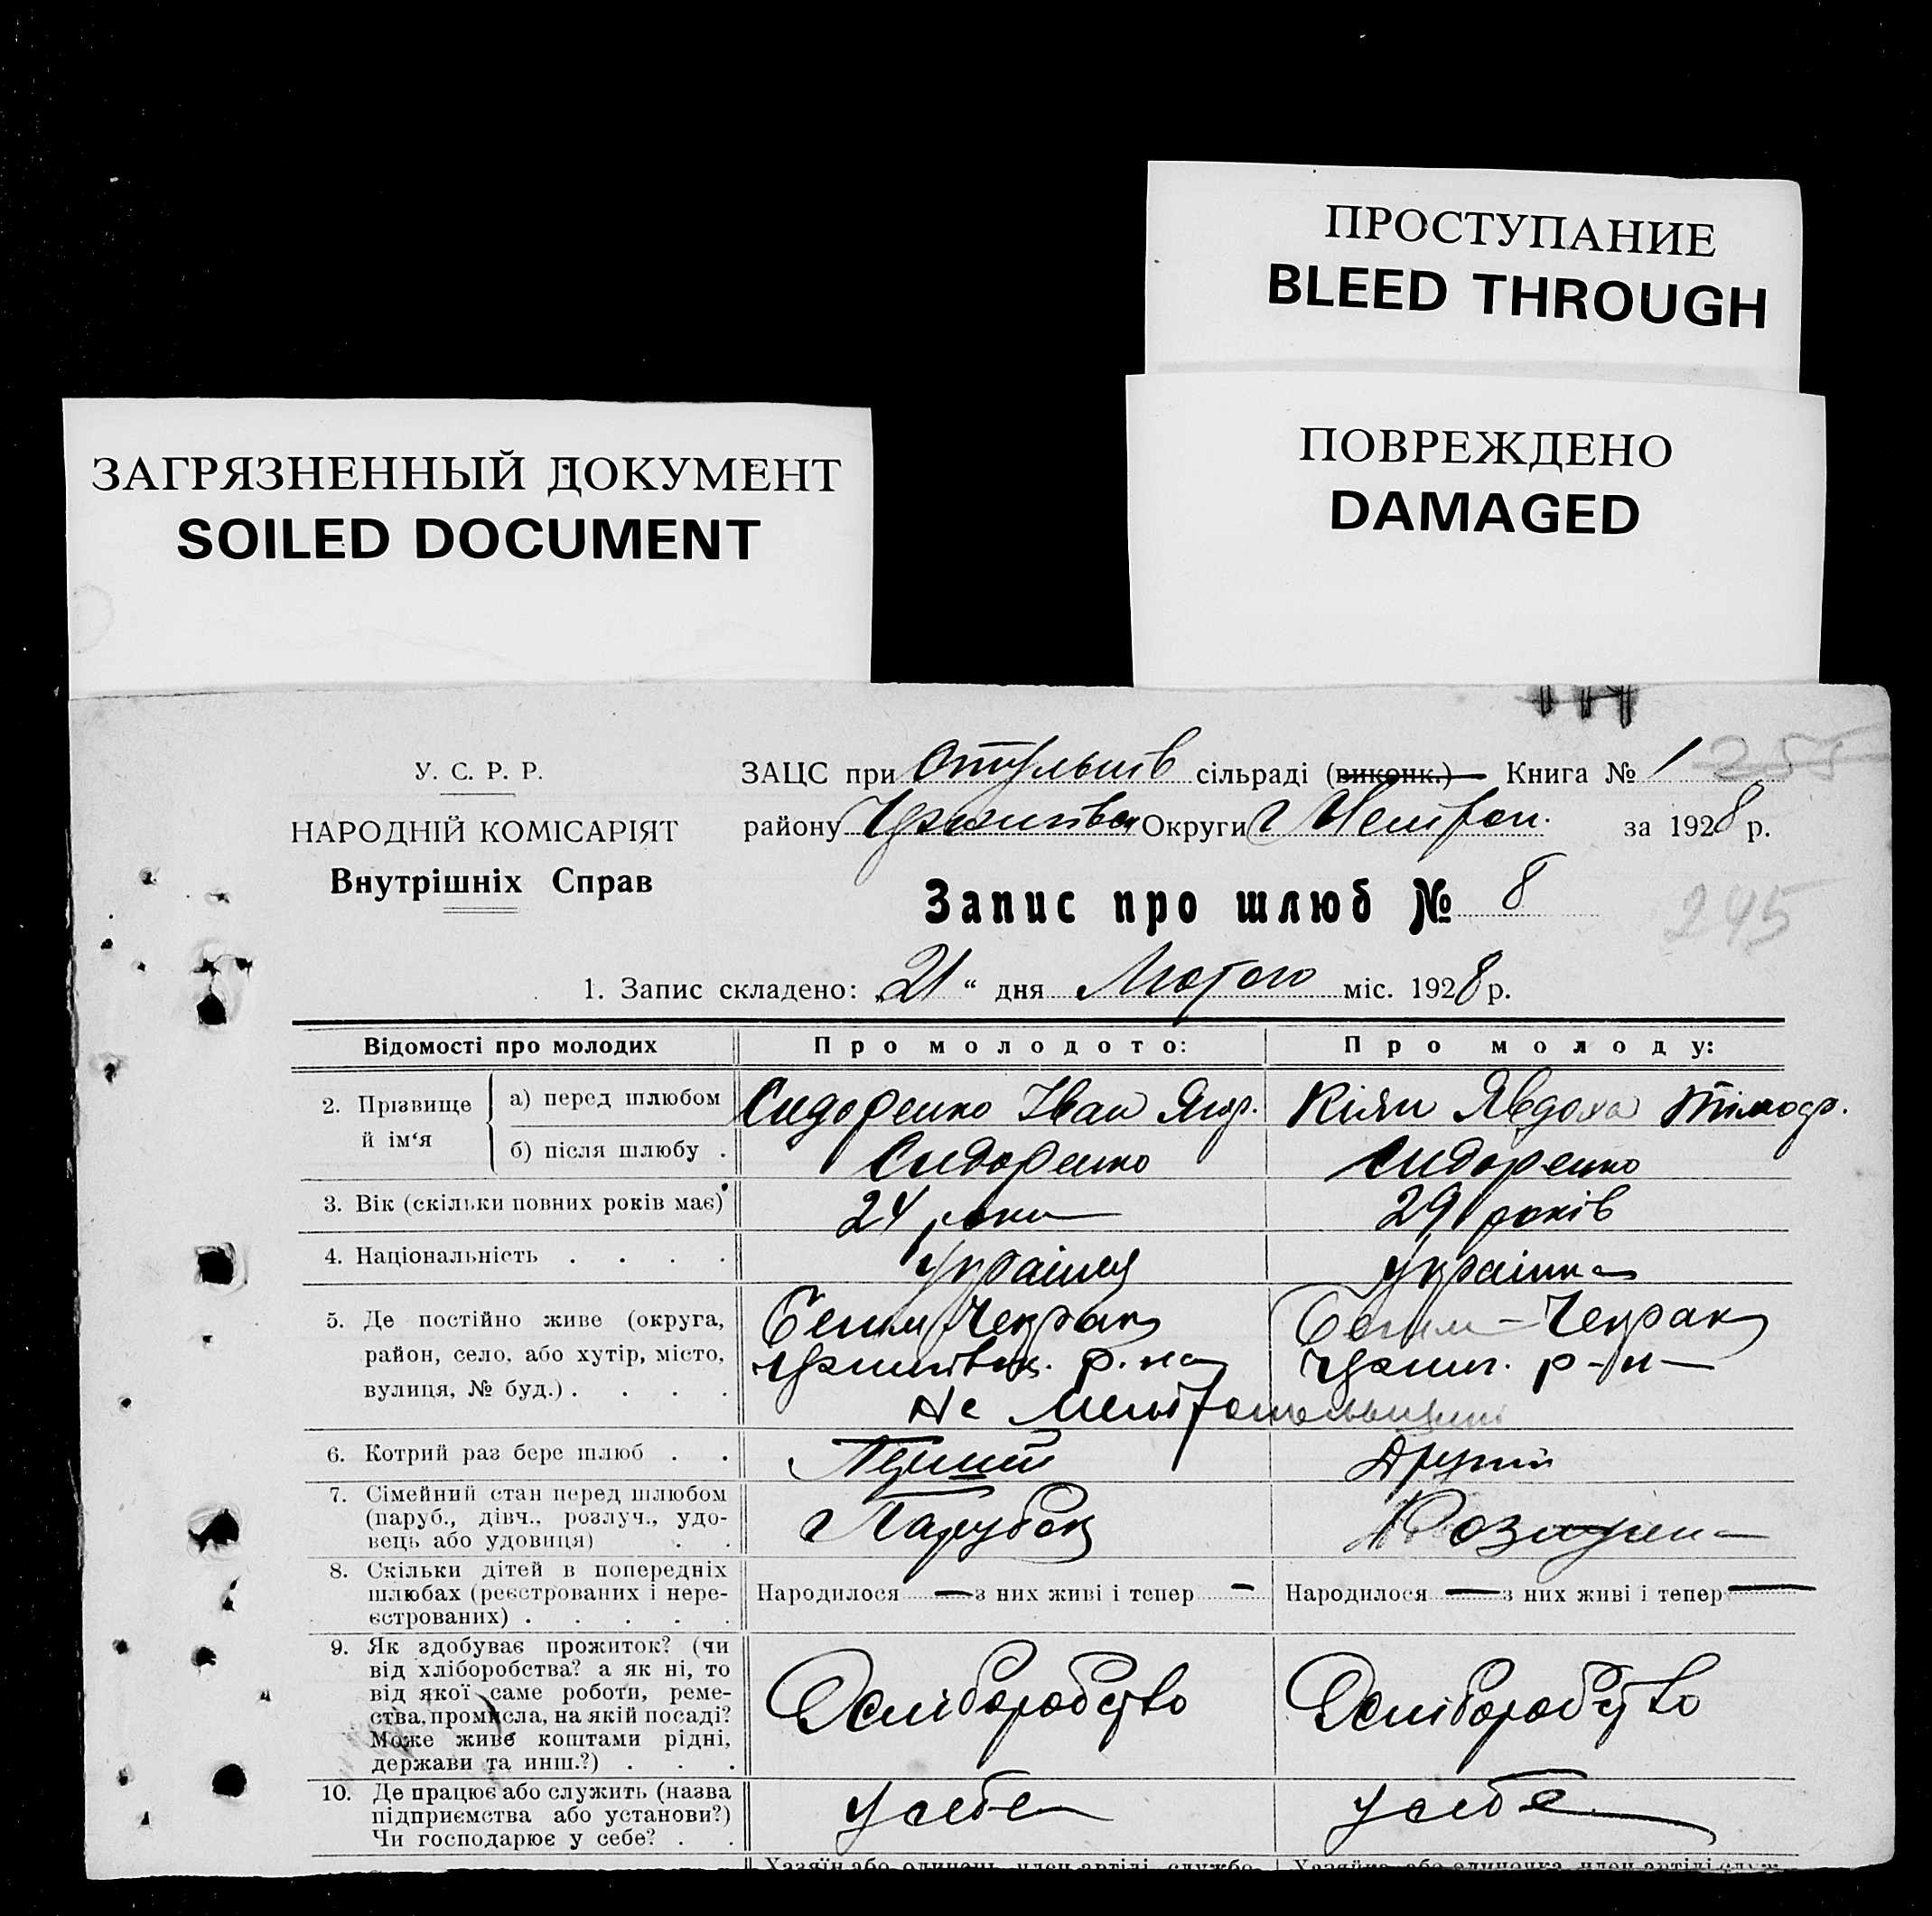 ПРОСТУПАНИЕ
BLEED THROUGH
ЗАГРЯЗНЕННЫЙ ДОКУМЕНТ
SOILED DOCUMENT
ПОВРЕЖДЕНО
DAMAGED
У. С. Р. Р.
НАРОДНІЙ КОМІСАРІЯТ
Внутрішніх Справ
ЗАЦС при сільраді (виконк.) Книга № 1 255
району Округи Меліtоп. за 1928 р.
Запис про шлюб № 8
245
1. Запис складено: „21“ дня Лютого міс. 1928 р.
Відомості про молодих Про молодого: Про молоду:
2. Прізвище й ім‘я а) перед шлюбом Сидоренко Іван Кіян Явдоха Тімоф.
б) після шлюбу . Сидоренко Сидоренко
3. Вік (скільки повних років має) 24 роки 29 років
4. Національність . . . . Українец Українка
5. Де постійно живе (округа, Бегим Чекрак Бегим-Чекрак
район, село, або хутір, місто, р-на р-н
вулиця, № буд.) . . . . На Мелітопольщині
6. Котрий раз бере шлюб . . Перший Другий
7. Сімейний стан перед шлюбом
(паруб., дівч., розлуч., удо- Парубок
вець або удовиця) . .
8. Скільки дітей в попередніх
шлюбах (реєстрованих і нере- Народилося — з них живі і тепер — Народилося — з них живі і тепер —
єстрованих) . . . . .
9. Як здобуває прожиток? (чи
від хліборобства? а як ні, то
від якої саме роботи, реме- Хліборобство Хліборобство
ства, промисла, на якій посаді?
Може живе коштами рідні,
держави та инш.?) . . .
10. Де працює або служить (назва
підприємства або установи?) У себе У себе
Чи господарює у себе? . .
Хазяїн або одинець, член артілі, службо Хазяйка або одиночка, член артілі